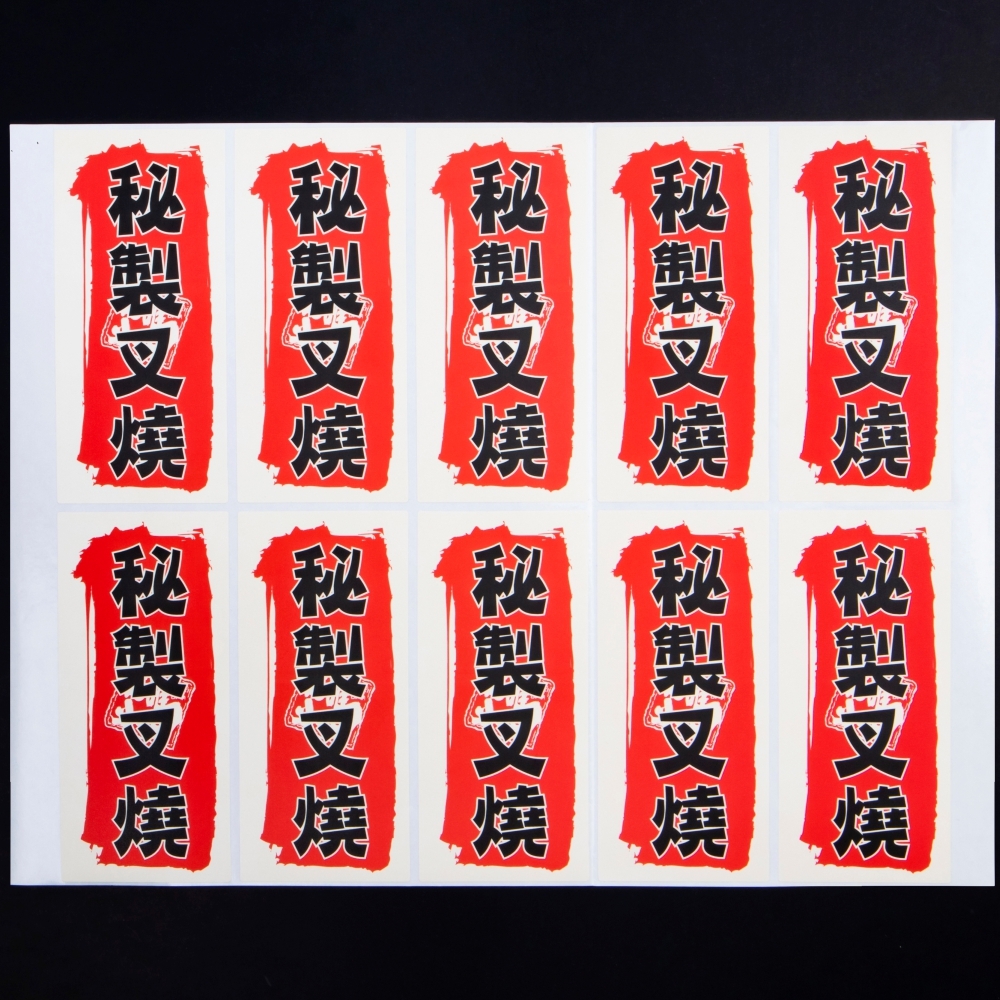 秘製叉燒
秘製叉燒
秘製叉燒
秘製叉燒
秘製叉燒
秘製叉燒
秘製叉燒
秘製叉燒
秘製叉燒
秘製叉燒